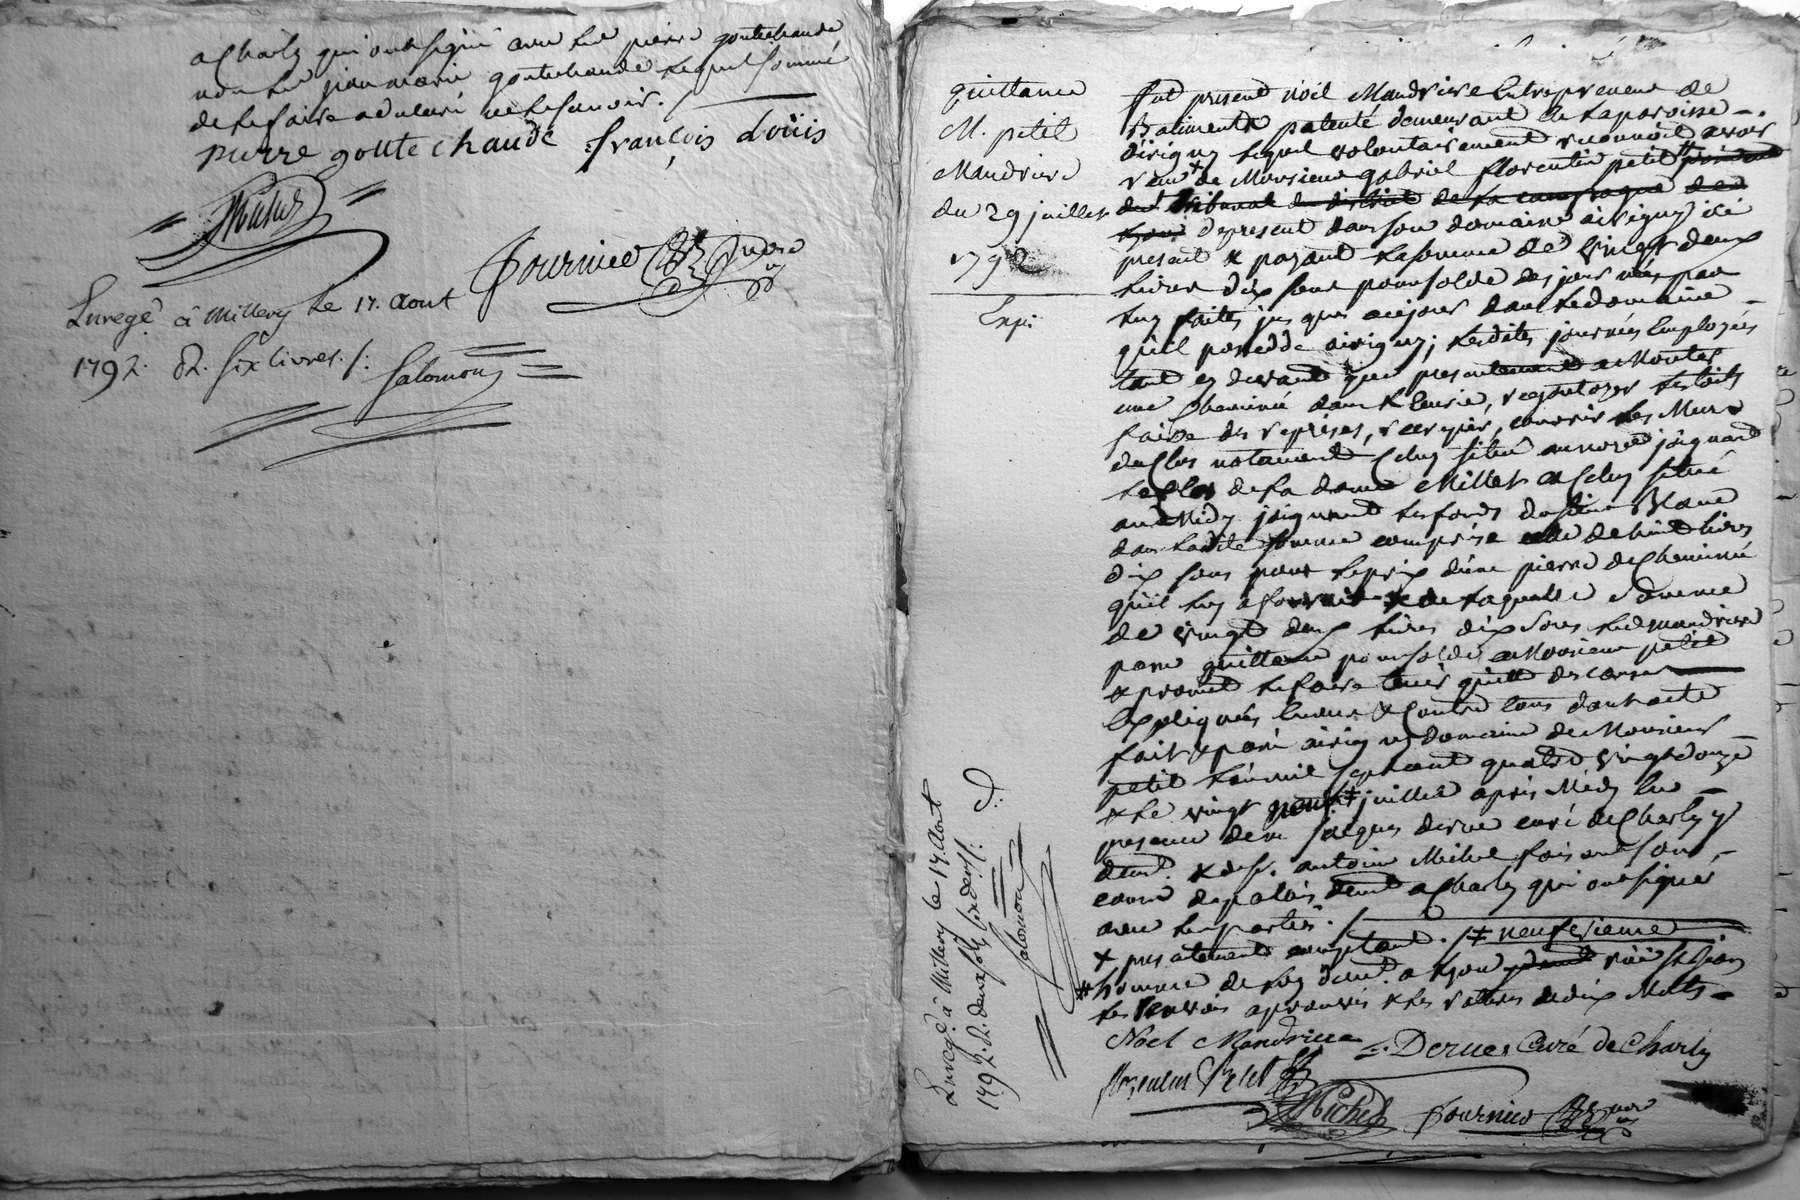 a Charly qui ont signé avec led. pierre gouttechaude
non led. jean marie gouttechaude lequel sommé
de le faire a declaré ne le savoir ./.
pierre goutte chaude françois doüis
Michel
fournier nore
Enregé. à Millery le 17. Aout
1792. R. six livres ./.
Salomon
quittance
M. petit
Mandrier
du 29 juillet
1792
Exp:
fut present noël Mandrier Entrepreneur de
Batiments patenté demeurant en la paroisse
d'irigny lequel volontairement reconnoit avoir
reçu + de Monsieur gabriel florentin petit #
du tribunal du district de la campagne de
Lyon de present dans son domaine a irigny ici
present & payant la somme de vingt deux
livres dix sous pour solde des journées par
luy faites jusques a ce jour dans le domaine
qu'il possede a irigny; lesdites journées Employées
tant cy devant que presentement a Monter
une cheminée dans , regoutoyer les toits
faire des reprises, recrepir, couvrir les Murs
du Clos notamment Celuy situé au nord joignant
le Clos de la dame Millet et Celuy situé
au Midy joignant les fonds du sieur Blanc
dans ladite somme comprise celle de huit livres
dix sous pour le prix d'une pierre de Cheminée
qu'il luy a fournie & de laquelle somme
de vingt deux livres dix sous led. Mandrier
passe quittance pour solde a Monsieur petit
& promet le faire tenir quitte des causes
Expliquées Envers & Contre tous dont acte
fait & passé a irigny domaine de Monsieur
petit l'an mil sept cent quatre vingt douze
& le vingt neuf ‡ juillet après Midy En
presence de m. jacques derue curé de Charly y
demt. & de sr. antoine Michel faisant son
cours de palais demt a Charly qui ont signés
avec les parties ./.
+ presentement comptant ./. ‡ neuf sieme
# homme de loy demt. a Lyon
les renvois aprouvés & les ratures de dix Mots
Noël Mandrier
Derue Curé de Charly
florentin Petit
Michel
fournier nore
Enregé. à Millery le 17. Aout
1792. R. douze sols six deniers ./.
Salomon